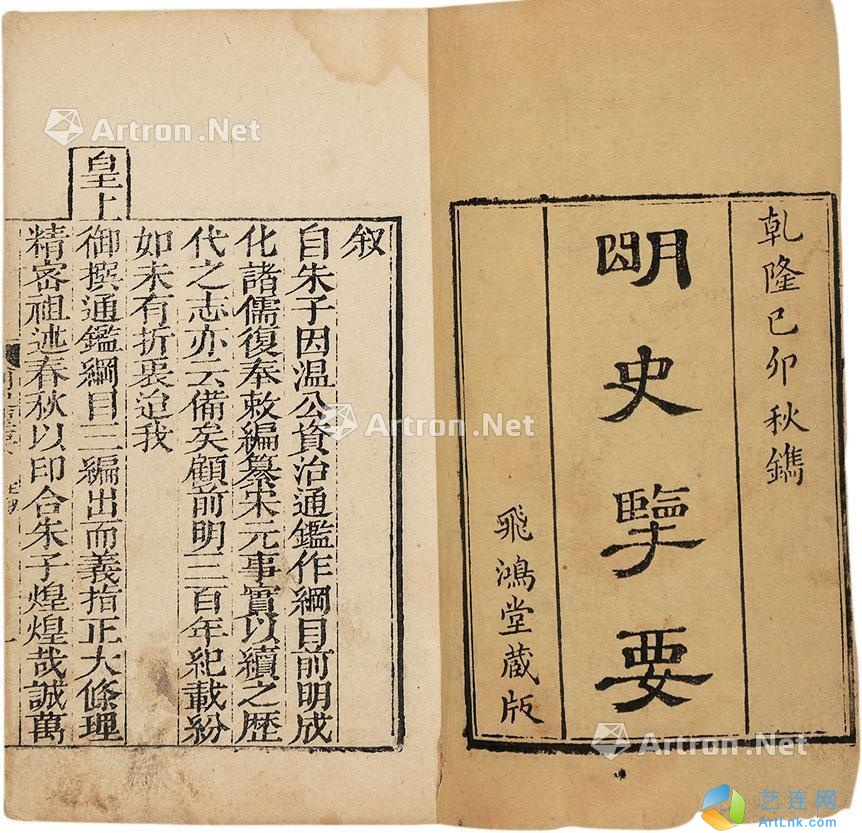 乾隆己卯秋鐫
朙史擥要
飛鴻堂藏版
叙
自朱子因温公資治通鑑作綱目前明成
化諸儒復奉敕編纂宋元事實以續之歴
代之志亦云備矣顧前明三百年紀載紛
如未有折衷迨我
皇上
御撰通鑑綱目三編出而義指正大條理
精密祖述春秋以印合朱子煌煌哉誠萬
一
Artron.Net
Artron.Net
Artron.Net
艺连网
ArtLnk.com